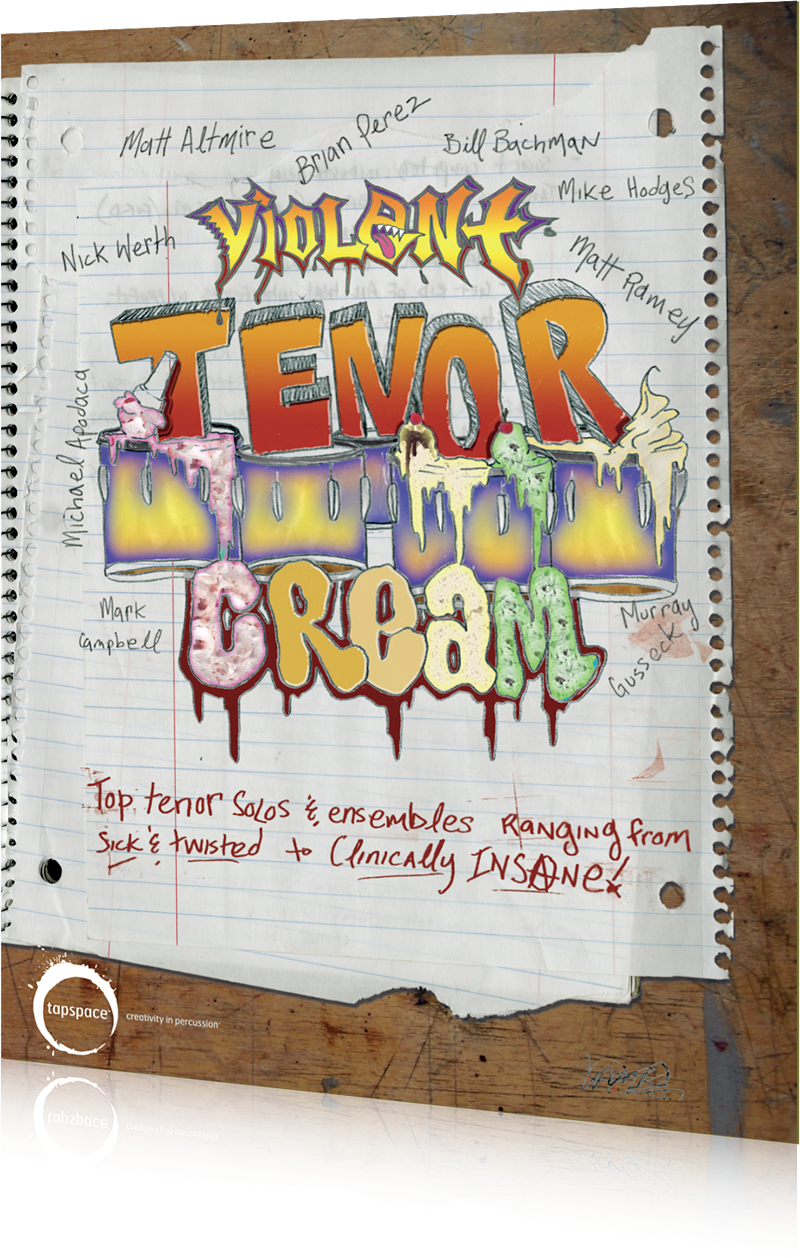 Matt Altmire
Brian Perez
Bill Bachman
Mike Hodges
Nick Werth
Matt Ramey
VIOLENT
TENOR
Michael Apodaca
CREAM
Mark
Campbell
Murray
Gusseck
Top tenor solos & ensembles Ranging from
Sick & twisted to Clinically INSANe!
tapspace™
creativity in percussion™